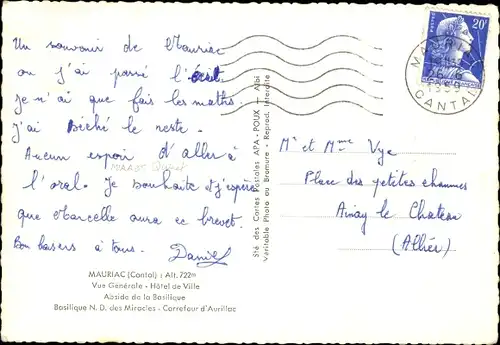 Un souvenir de Mauriac
ou j'ai passé l'écrit
Je n'ai que fais les maths.
J'ai séché le reste.
Aucun espoir d'aller à
l'oral. Je souhaite et j'espère
que Marcelle aura ce brevet.
Bon basers à tous. Daniel
MAURIAC (Cantal) : Alt. 722m
Vue Générale - Hôtel de Ville
Abside de la Basilique
Basilique N. D. des Miracles - Carrefour d'Aurillac
Sté des Cartes Postales APA - POUX - Albi
Véritable Photo au Bromure - Reprod. Interdite
20F
CANTAL
Mr et Mme Vye
Place des petites chaumes
Ainay le Chateau
(Allier)